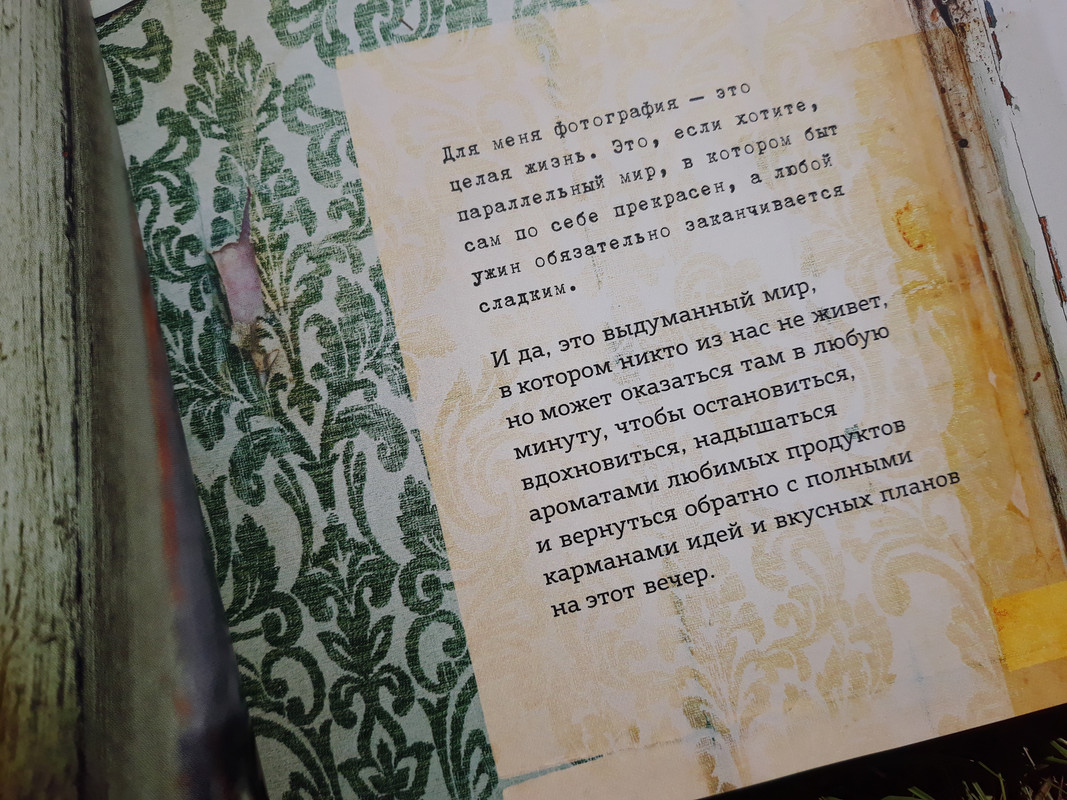 Для меня фотография — это
целая жизнь. Это, если хотите,
параллельный мир, в котором быт
сам по себе прекрасен, а любой
ужин обязательно заканчивается
сладким.
И да, это выдуманный мир,
в котором никто из нас не живет,
но может оказаться там в любую
минуту, чтобы остановиться,
вдохновиться, надышаться
ароматами любимых продуктов
и вернуться обратно с полными
карманами идей и вкусных планов
на этот вечер.